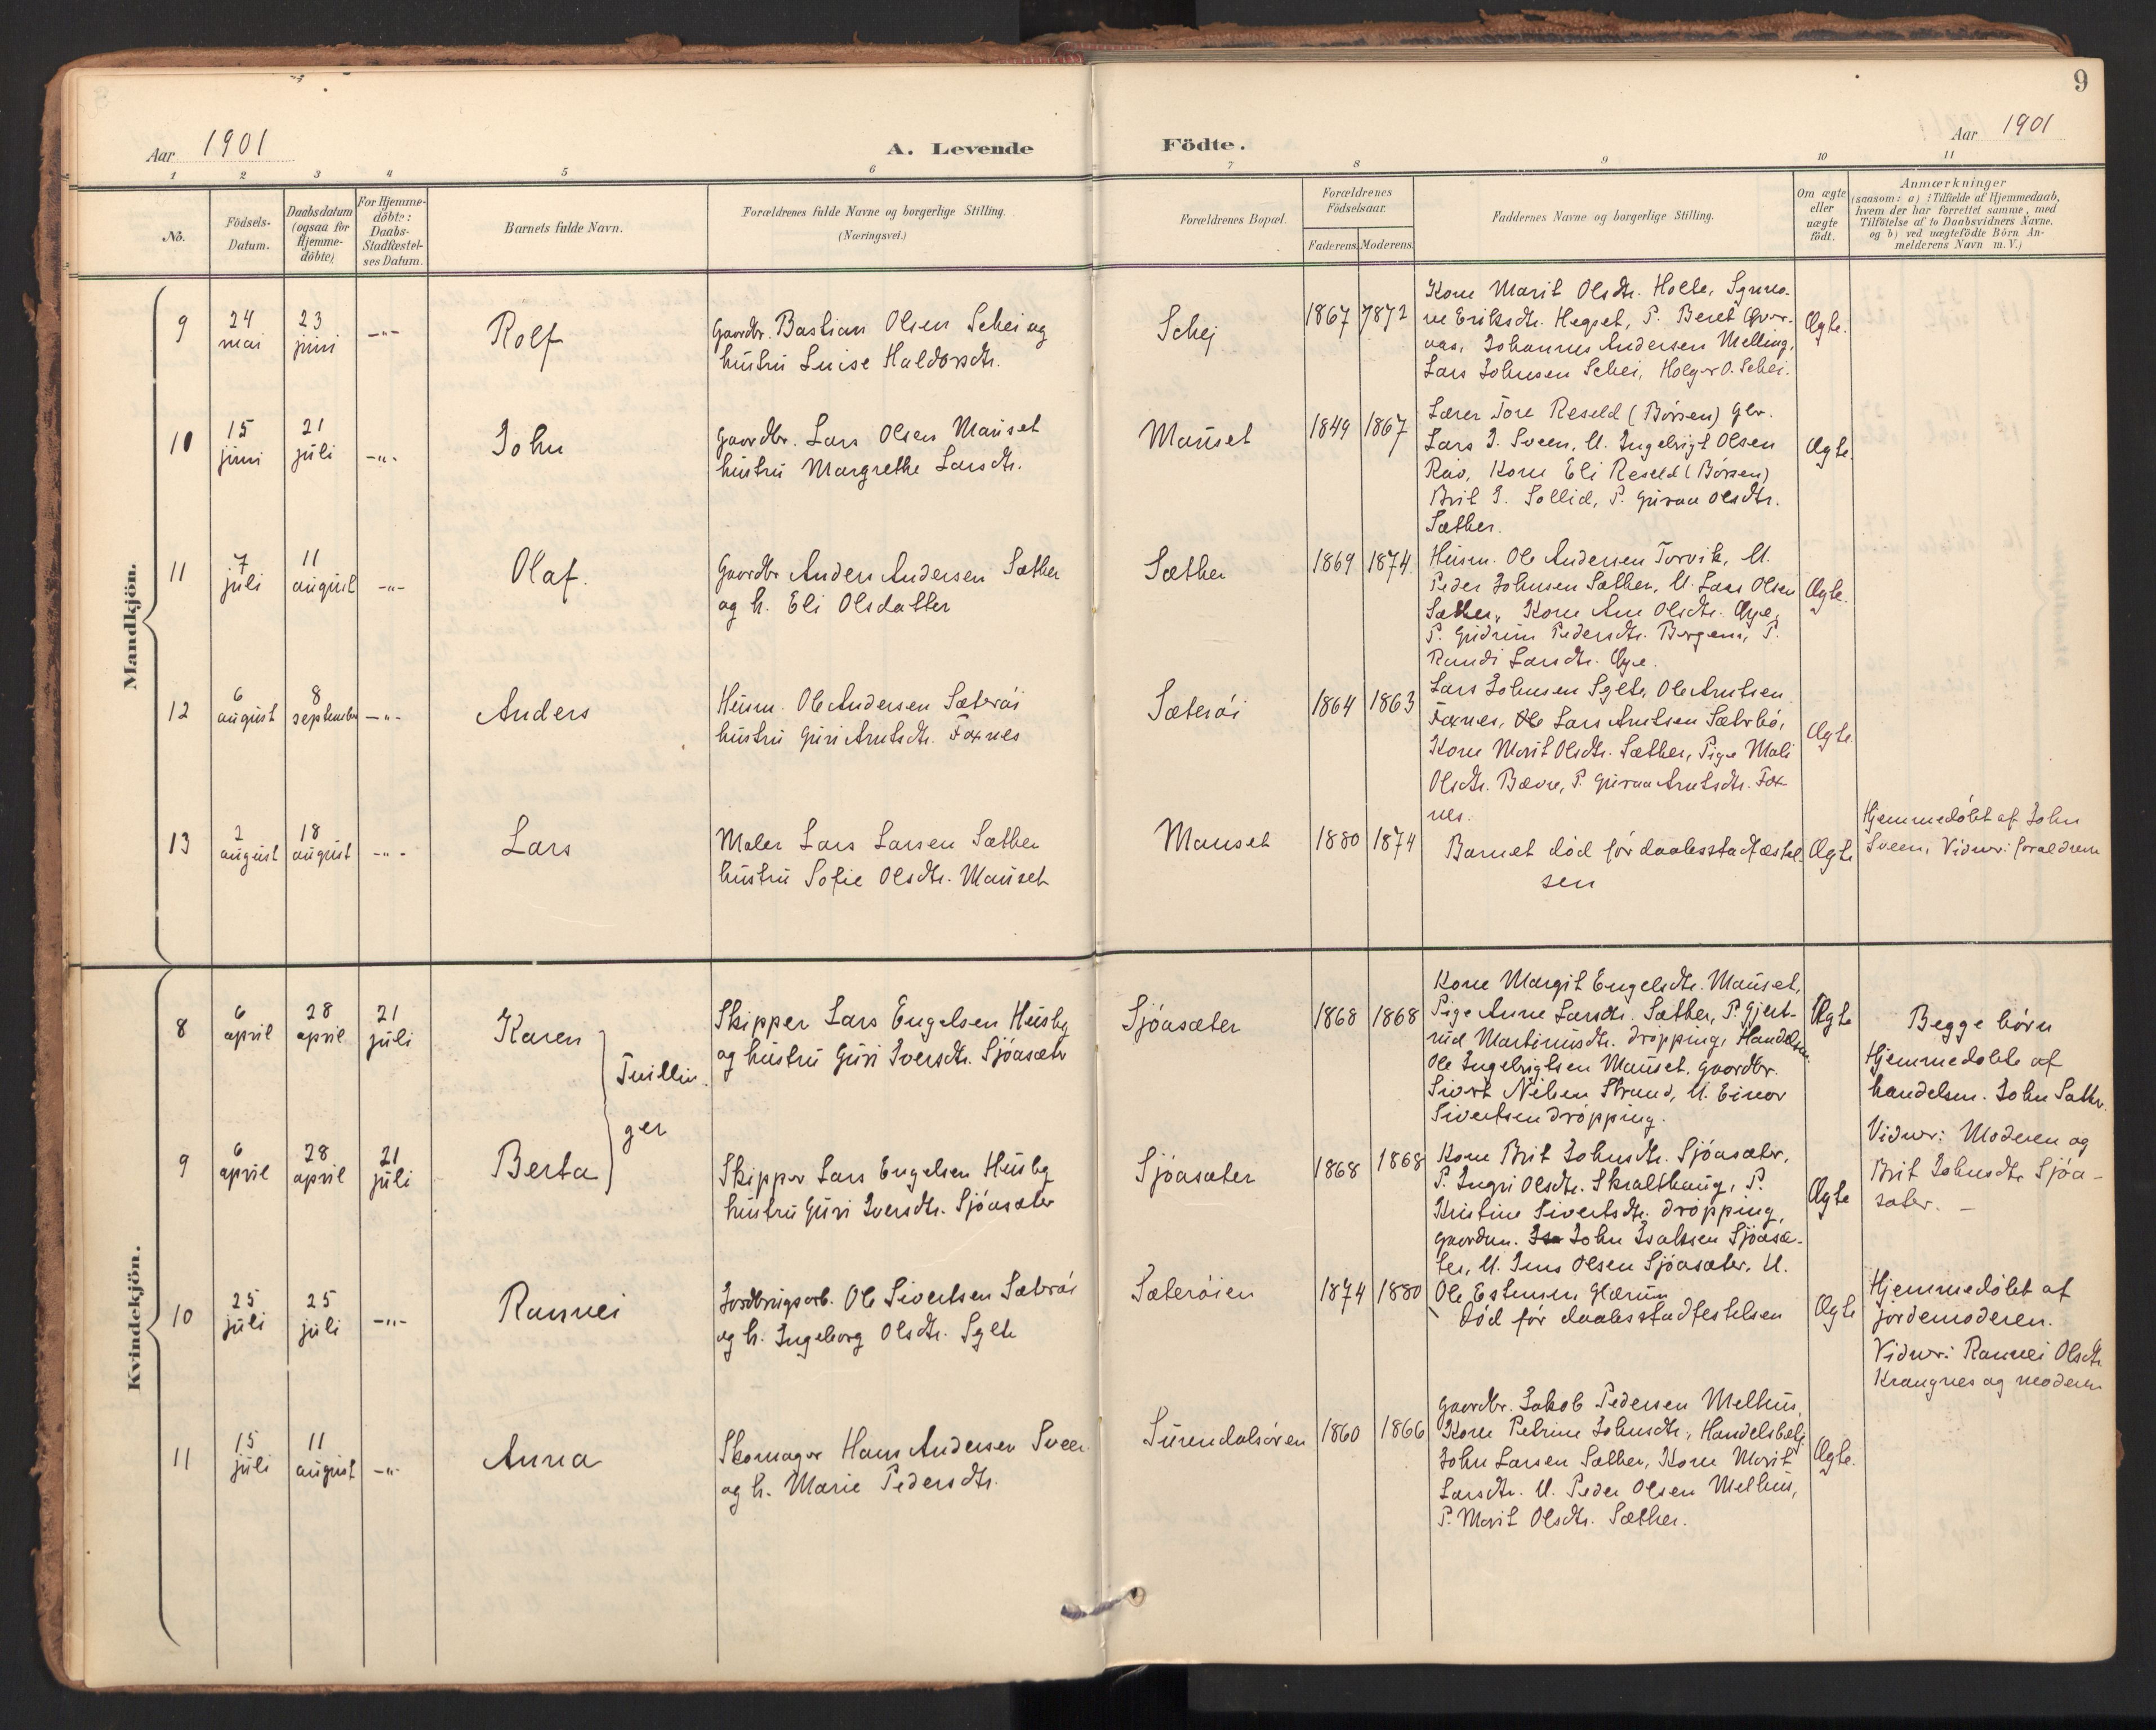 9
Aar 1901
A. Levende
Födte.
Aar 1901
1 2 3 4 5 6 7 8 9 10 11
No.
Födsels-
Datum.
Daabsdatum
(ogsaa for
Hjemme-
döbte).
For Hjemme-
döbte:
Daabs-
Stadfæstel-
ses Datum.
Barnets fulde Navn.
Forældrenes fulde Navne og borgerlige Stilling.
(Næringsvei.)
Forældrenes Bopæl.
Forældrenes
Födselsaar.
Faderens. Moderens.
Faddernes Navne og borgerlige Stilling.
Om ægte
eller
uægte
födt.
Anmærkninger
(saasom: a) i Tilfælde af Hjemmedaab,
hvem der har forrettet samme, med
Tilföielse af to Daabsvidners Navne,
og b) ved uægtefödte Börn An-
melderens Navn m. V.)
Mandkjön.
9
24
mai
23
juni
-"-
Rolf
Gaardbr. Bastian Olsen Schei og
hustru Luise Haldorsdtr.
Schej
1867 1872
Kone Marit Olsdtr. Holte,
Eriksdtr. Hegset, P. Beret
Johannes Andersen Melling,
Lars Johnsen Schei, Holger O. Schei.
Ægte.
10
15
juni
21
juli
-"-
John
Gaardbr. Lars Olsen Mauset
hustru Margrethe Larsdtr.
Mauset
1849 1867
Lærer Tore Reseld (Börsen) Gbr.
Lars J. Sveen, U. Ingebrigt Olsen
Rav, Kone Eli Reseld (Börsen)
Brit J. Sollid, P. Guraa Olsdtr.
Sæther.
Ægte.
11
7
juli
11
august
-"-
Olaf.
Gaardbr Anders Andersen Sæther
og h. Eli Olsdatter
Sæther
1869 1874.
Husm. Ole Andersen Torvik, U.
Peder Johnsen Sæther, U. Lars Olsen
Sæther, Kone Ane Olsdtr. Øye,
P. Gudrun Pedersdtr. Bergem, P.
Randi Larsdtr. Øye.
Ægte.
12
6
august
8
september
-"-
Anders
Husm. Ole Andersen Sæterøi
hustru Guri Arntsdtr. Foxnes
Sæterøi
1864 1863
Lars Johnsen Sylte, Ole Arntsen
Foxnes, Lars Arntsen Sæterbö,
Kone Marit Olsdtr. Sæther, Pige Mali
Olsdtr. Bævre, P. Guraa Arntsdtr. Fox-
nes.
Ægte.
13
2
august
18
august
-"-
Lars
Maler Lars Larsen Sæther
hustru Sofie Olsdtr. Mauset
Mauset
1880 1874
Barnet död för daabsstadfæstel
sen
Ægte
Hjemmedöbt af John
Sveen, Vidner: forældrene
Kvindekjön.
8
6
april
28
april
21
juli
Karen
Tvillin-
ger
Skipper Lars Engelsen Husby
og hustru Guri Iversdtr. Sjöasæter
Sjöasæter
1868 1868
Kone Margit Engelsdtr. Mauset,
Pige Anne Larsdtr. Sæther, P. Gjert-
rud Martinusdtr. Dröpping, Handelsm.
Ole Ingebrigtsen Mauset, Gaardbr.
Sivert Nilsen Strand, U. Einar
Sivertsen Dröpping.
Ægte
Begge börn
Hjemmedöbte af
handelsm. John Sæther.
Vidner: Moderen og
Brit Johnsdtr. Sjöa-
sæter. -
9
6
april
28
april
21
juli
Berta
Skipper Lars Engelsen Husby
hustru Guri Iversdtr. Sjöasæter
Sjöasæter
1868 1868
Kone Brit Johnsdtr. Sjöasæter,
P. Ingri Olsdtr. Skralthaug, P.
Kristine Sivertsdtr. Dröpping,
Gaardm. John Isaksen Sjöasæ-
ter, U. Jens Olsen Sjöasæter, U.
Ole Estensen Glærum
Ægte
10
25
juli
25
juli
-"-
Rannei
Jordbrugsarb. Ole Sivertsen Sæterøi
og h. Ingeborg Olsdtr. Sylte
Sæterøien
1874 1880
Död för daabsstadfestelsen
Ægte
Hjemmedöbt af
jordemoderen.
Vidner: Rannei Olsdtr.
Krangnes og moderen
11
15
juli
11
august
-"-
Anna
Skomager Hans Andersen Sveen
og h. Marie Pedersdtr.
Surendalsøren
1860 1866
Gaardbr. Jakob Pedersen Melhus,
Kone Petrine Johnsdtr., Handelsbetj.
John Larsen Sæther, Kone Marit
Larsdtr. U. Peder Olsen Melhus,
P. Marit Olsdtr. Sæther.
Ægte.